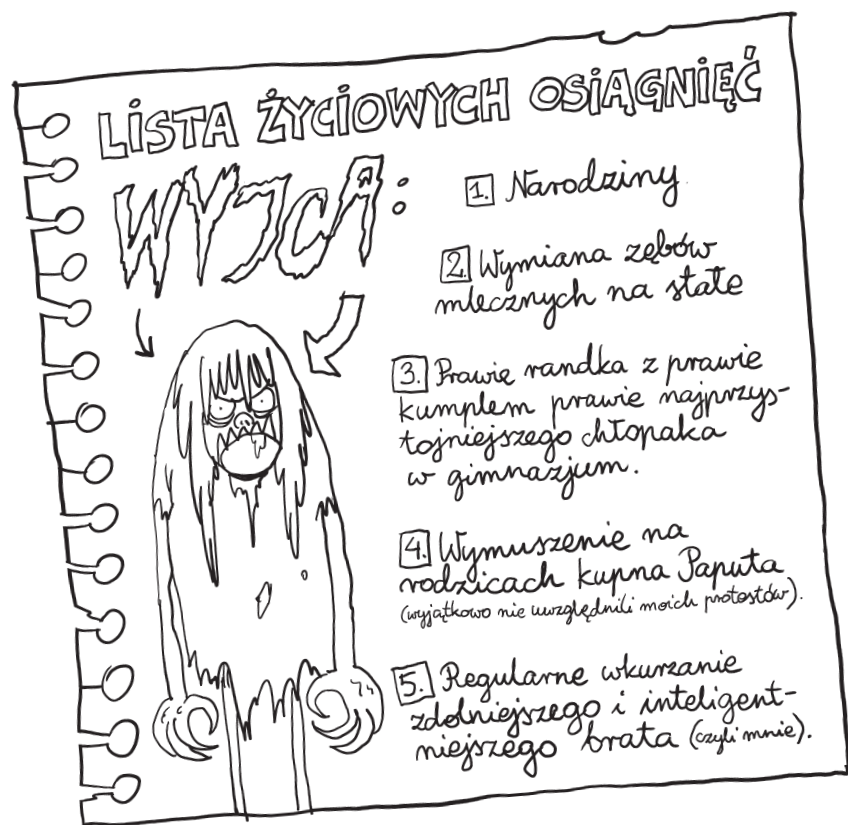 LiSTA ŻYCiOWYCH OSiĄGNiĘĆ
WYJCA:
1. Narodziny
2. Wymiana zębów
mlecznych na stałe
3. Prawie randka z prawie
kumplem prawie najprzys-
tojniejszego chłopaka
w gimnazjum.
4. Wymuszenie na
rodzicach kupna Paputa
(wyjątkowo nie uwzględnili moich protestów).
5. Regularne wkurzanie
zdolniejszego i inteligent-
niejszego brata (czyli mnie).